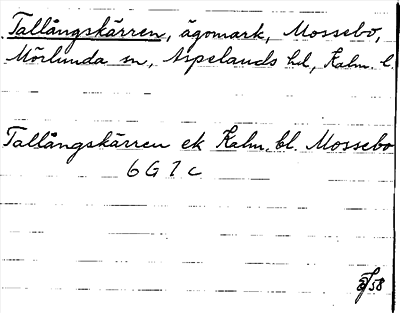 Tallångskärren, ägomark, Mossebo,
Mörlunda sn, Aspelands hd, Kalm. l.
Tallångskärren ek Kalm. bl. Mossebo
6G7c
58